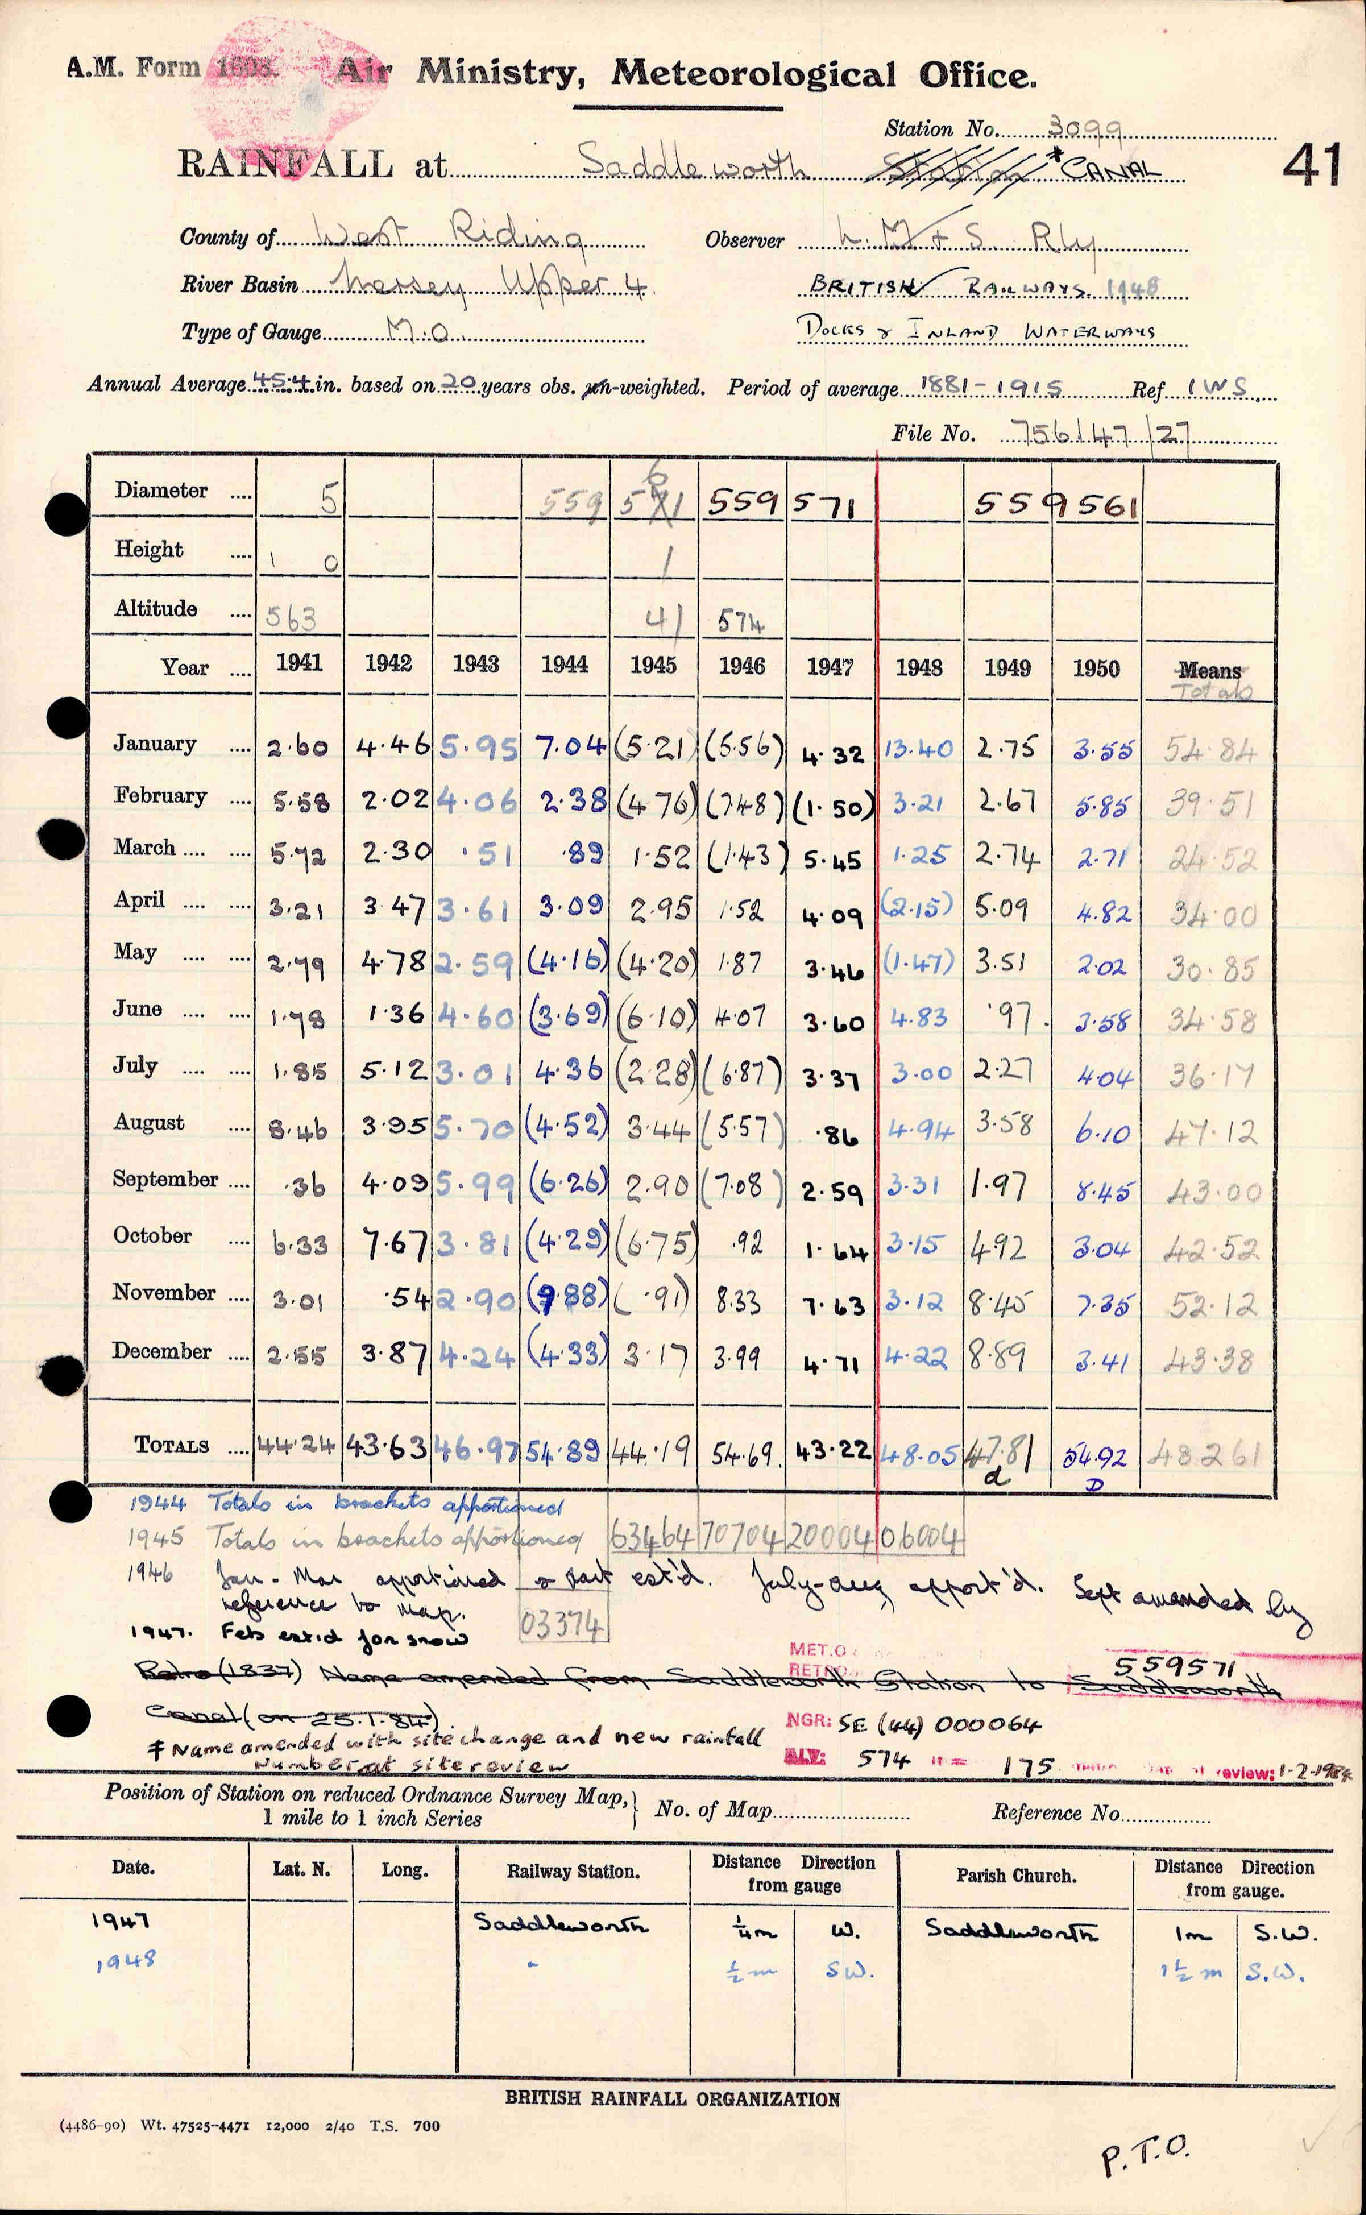 A.M. Form 1608. Air Ministry, Meteorological Office.
Station No. 3099
41
RAINFALL at Saddleworth Station * CANAL
County of West Riding Observer L.M & S. Rly
River Basin Mersey Upper 4 BRITISH RAILWAYS. 1948
Type of Gauge M.O. DOCKS & INLAND WATERWAYS
Annual Average 45.4 in. based on 20 years obs. un-weighted. Period of average 1881-1915 Ref IWS
File No. 756/47/27
Diameter .... 5 559 571 6 559 571 559 561
Height .... 1 0 1
Altitude .... 563 41 574
Year .... 1941 1942 1943 1944 1945 1946 1947 1948 1949 1950 Means
Totals
January .... 2.60 4.46 5.95 7.04 (5.21) (5.56) 4.32 13.40 2.75 3.55 54.84
February .... 5.58 2.02 4.06 2.38 (4.76) (7.48) (1.50) 3.21 2.67 5.85 39.51
March .... .... 5.72 2.30 .51 .89 1.52 (1.43) 5.45 1.25 2.74 2.71 24.52
April .... .... 3.21 3.47 3.61 3.09 2.95 1.52 4.09 (2.15) 5.09 4.82 34.00
May .... .... 2.79 4.78 2.59 (4.16) (4.20) 1.87 3.46 (1.47) 3.51 2.02 30.85
June .... .... 1.78 1.36 4.60 (3.69) (6.10) 4.07 3.60 4.83 .97. 3.58 34.58
July .... .... 1.85 5.12 3.01 4.36 (2.28) (6.87) 3.37 3.00 2.27 4.04 36.17
August .... 8.46 3.95 5.70 (4.52) 3.44 (5.57) .86 4.94 3.58 6.10 47.12
September .... .36 4.09 5.99 (6.26) 2.90 (7.08) 2.59 3.31 1.97 8.45 43.00
October .... 6.33 7.67 3.81 (4.29) (6.75) .92 1.64 3.15 4.92 3.04 42.52
November .... 3.01 .54 2.90 (9.88) (.91) 8.33 7.63 3.12 8.45 7.35 52.12
December .... 2.55 3.87 4.24 (4.33) 3.17 3.99 4.71 4.22 8.89 3.41 43.38
TOTALS .... 44.24 43.63 46.97 54.89 44.19 54.69. 43.22 48.05 47.81 54.92 482 61
d D
1944 Totals in brackets apportioned
1945 Totals in brackets apportioned 63464 70704 20004 06004
1946 Jan - Mar apportioned & part est'd. July-Aug apport'd. Sept amended by
reference to map. 03374
1947. Feb est'd for snow
MET.O
RETRO
559571
Retro (1837) Name amended from Saddleworth Station to Saddleworth
Canal (on 25.1.84).
NGR: SE (44) 000064
* Name amended with site change and new rainfall
number at site review
ALT: 574 ft = 175 review: 1-2-1984
Position of Station on reduced Ordnance Survey Map,
1 mile to 1 inch Series
No. of Map Reference No.
Date. Lat. N. Long. Railway Station. Distance Direction from gauge Parish Church. Distance Direction from gauge.
1947 Saddleworth ¼m W. Saddleworth 1m S.W.
1948 " ½m SW. 1½m S.W.
BRITISH RAINFALL ORGANIZATION
(4486-90) Wt. 47525-4471 12,000 2/40 T.S. 700
P.T.O.